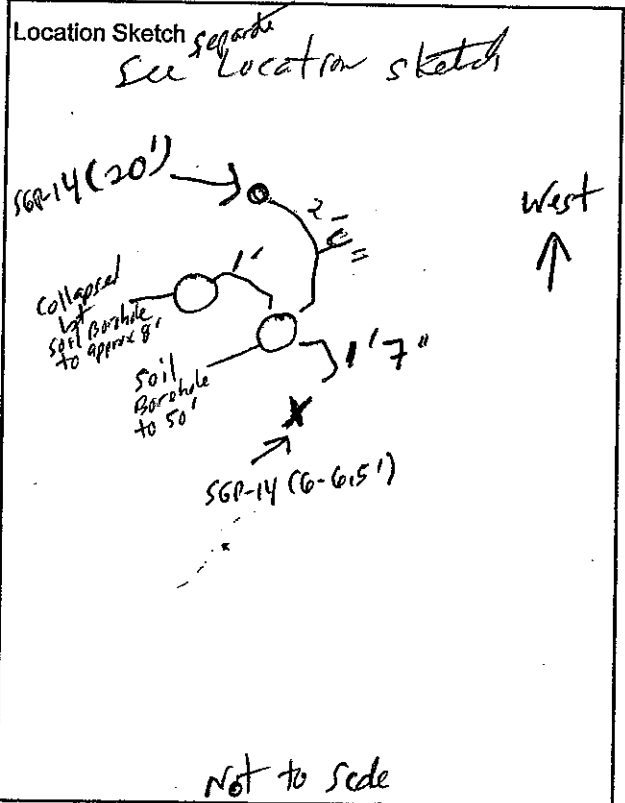 Location Sketch
See separate Location sketch
SGP-14 (20')
West
1'
collapsed
1st
soil Borehole
to approx 8'
soil
Borehole
to 50'
1'7"
SGP-14 (6-6.5')
Not to Scale